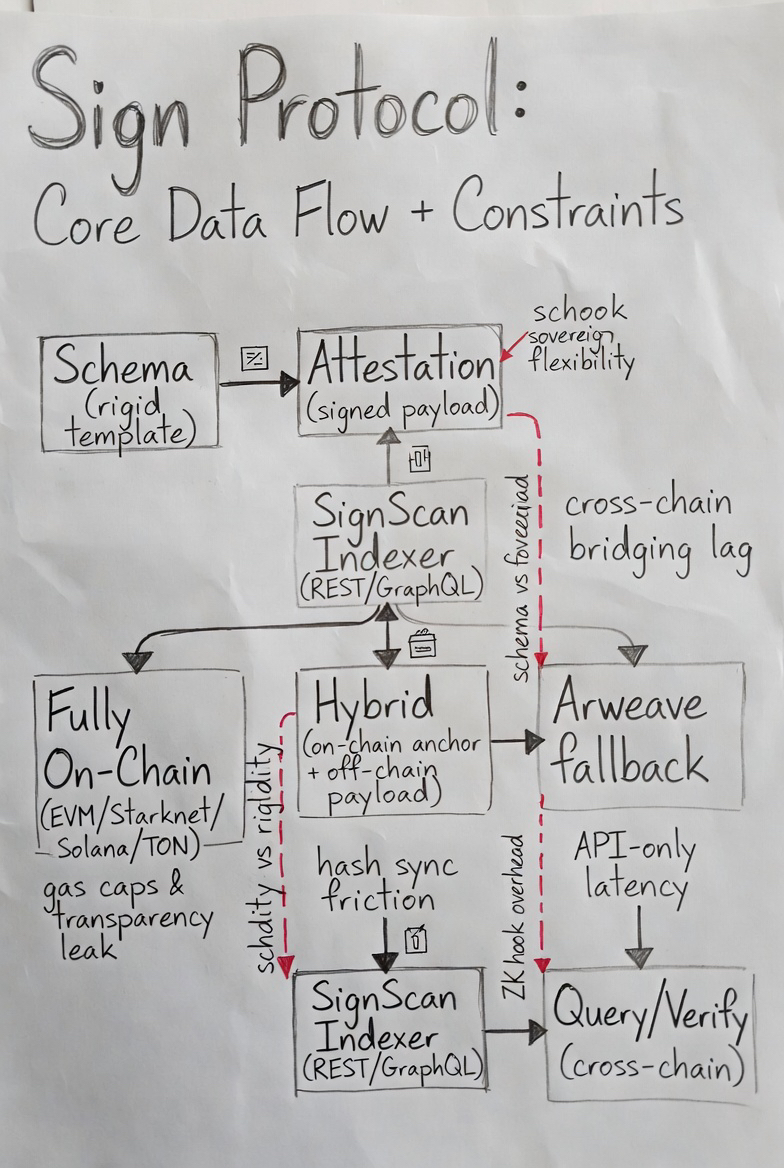 Sign Protocol:
Core Data Flow + Constraints
Schema
(rigid
template)
Attestation
(signed payload)
schook
sovereign
flexibility
SignScan
Indexer
(REST/GraphQL)
schema vs
cross-chain
bridging lag
Fully
On-Chain
(EVM/Starknet/
Solana/TON)
gas caps &
transparency
leak
schdity vs rigldity
Hybrid
(on-chain anchor
+ off-chain
payload)
Arweave
fallback
hash sync
friction
ZK hook overhead
API-only
latency
SignScan
Indexer
(REST/GraphQL)
Query/Verify
(cross-chain)